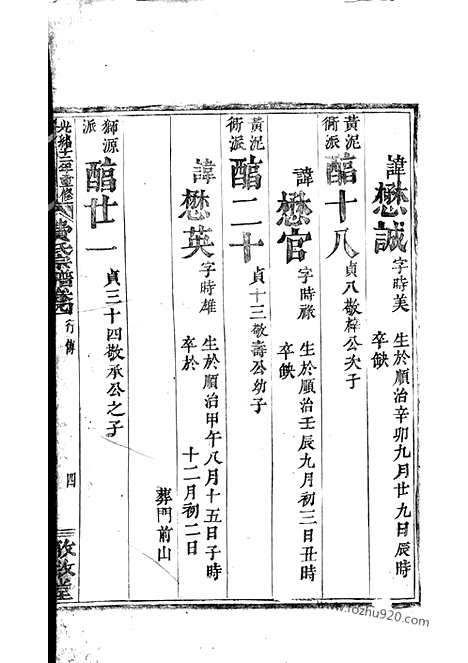 諱懋誠字時美 生於順治辛卯九月廿九日辰時
卒缺
黃泥衖派 酷十八 貞八敬梓公次子
諱懋官字時祿 生於順治壬辰九月初三日丑時
卒缺
黃泥衖派 酷二十 貞十三敬壽公幼子
諱懋英字時雄 生於順治甲午八月十五日子時
卒於 十二月初二日
葬門前山
獅源派 酷廿一 貞三十四敬承公之子
光緒十二年重修 黃氏宗譜 行傳 四 敦敘堂
www.fozhu920.com